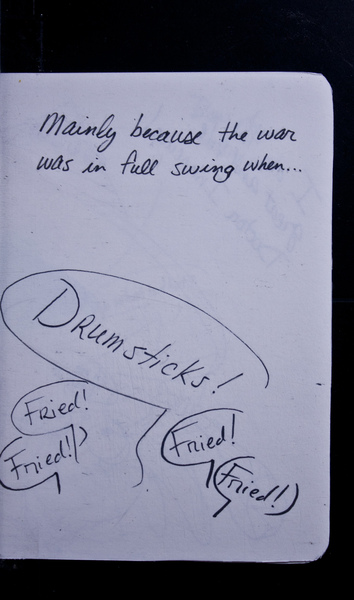 Mainly because the war
was in full swing when...
Drumsticks!
Fried!
Fried!
Fried!
Fried!